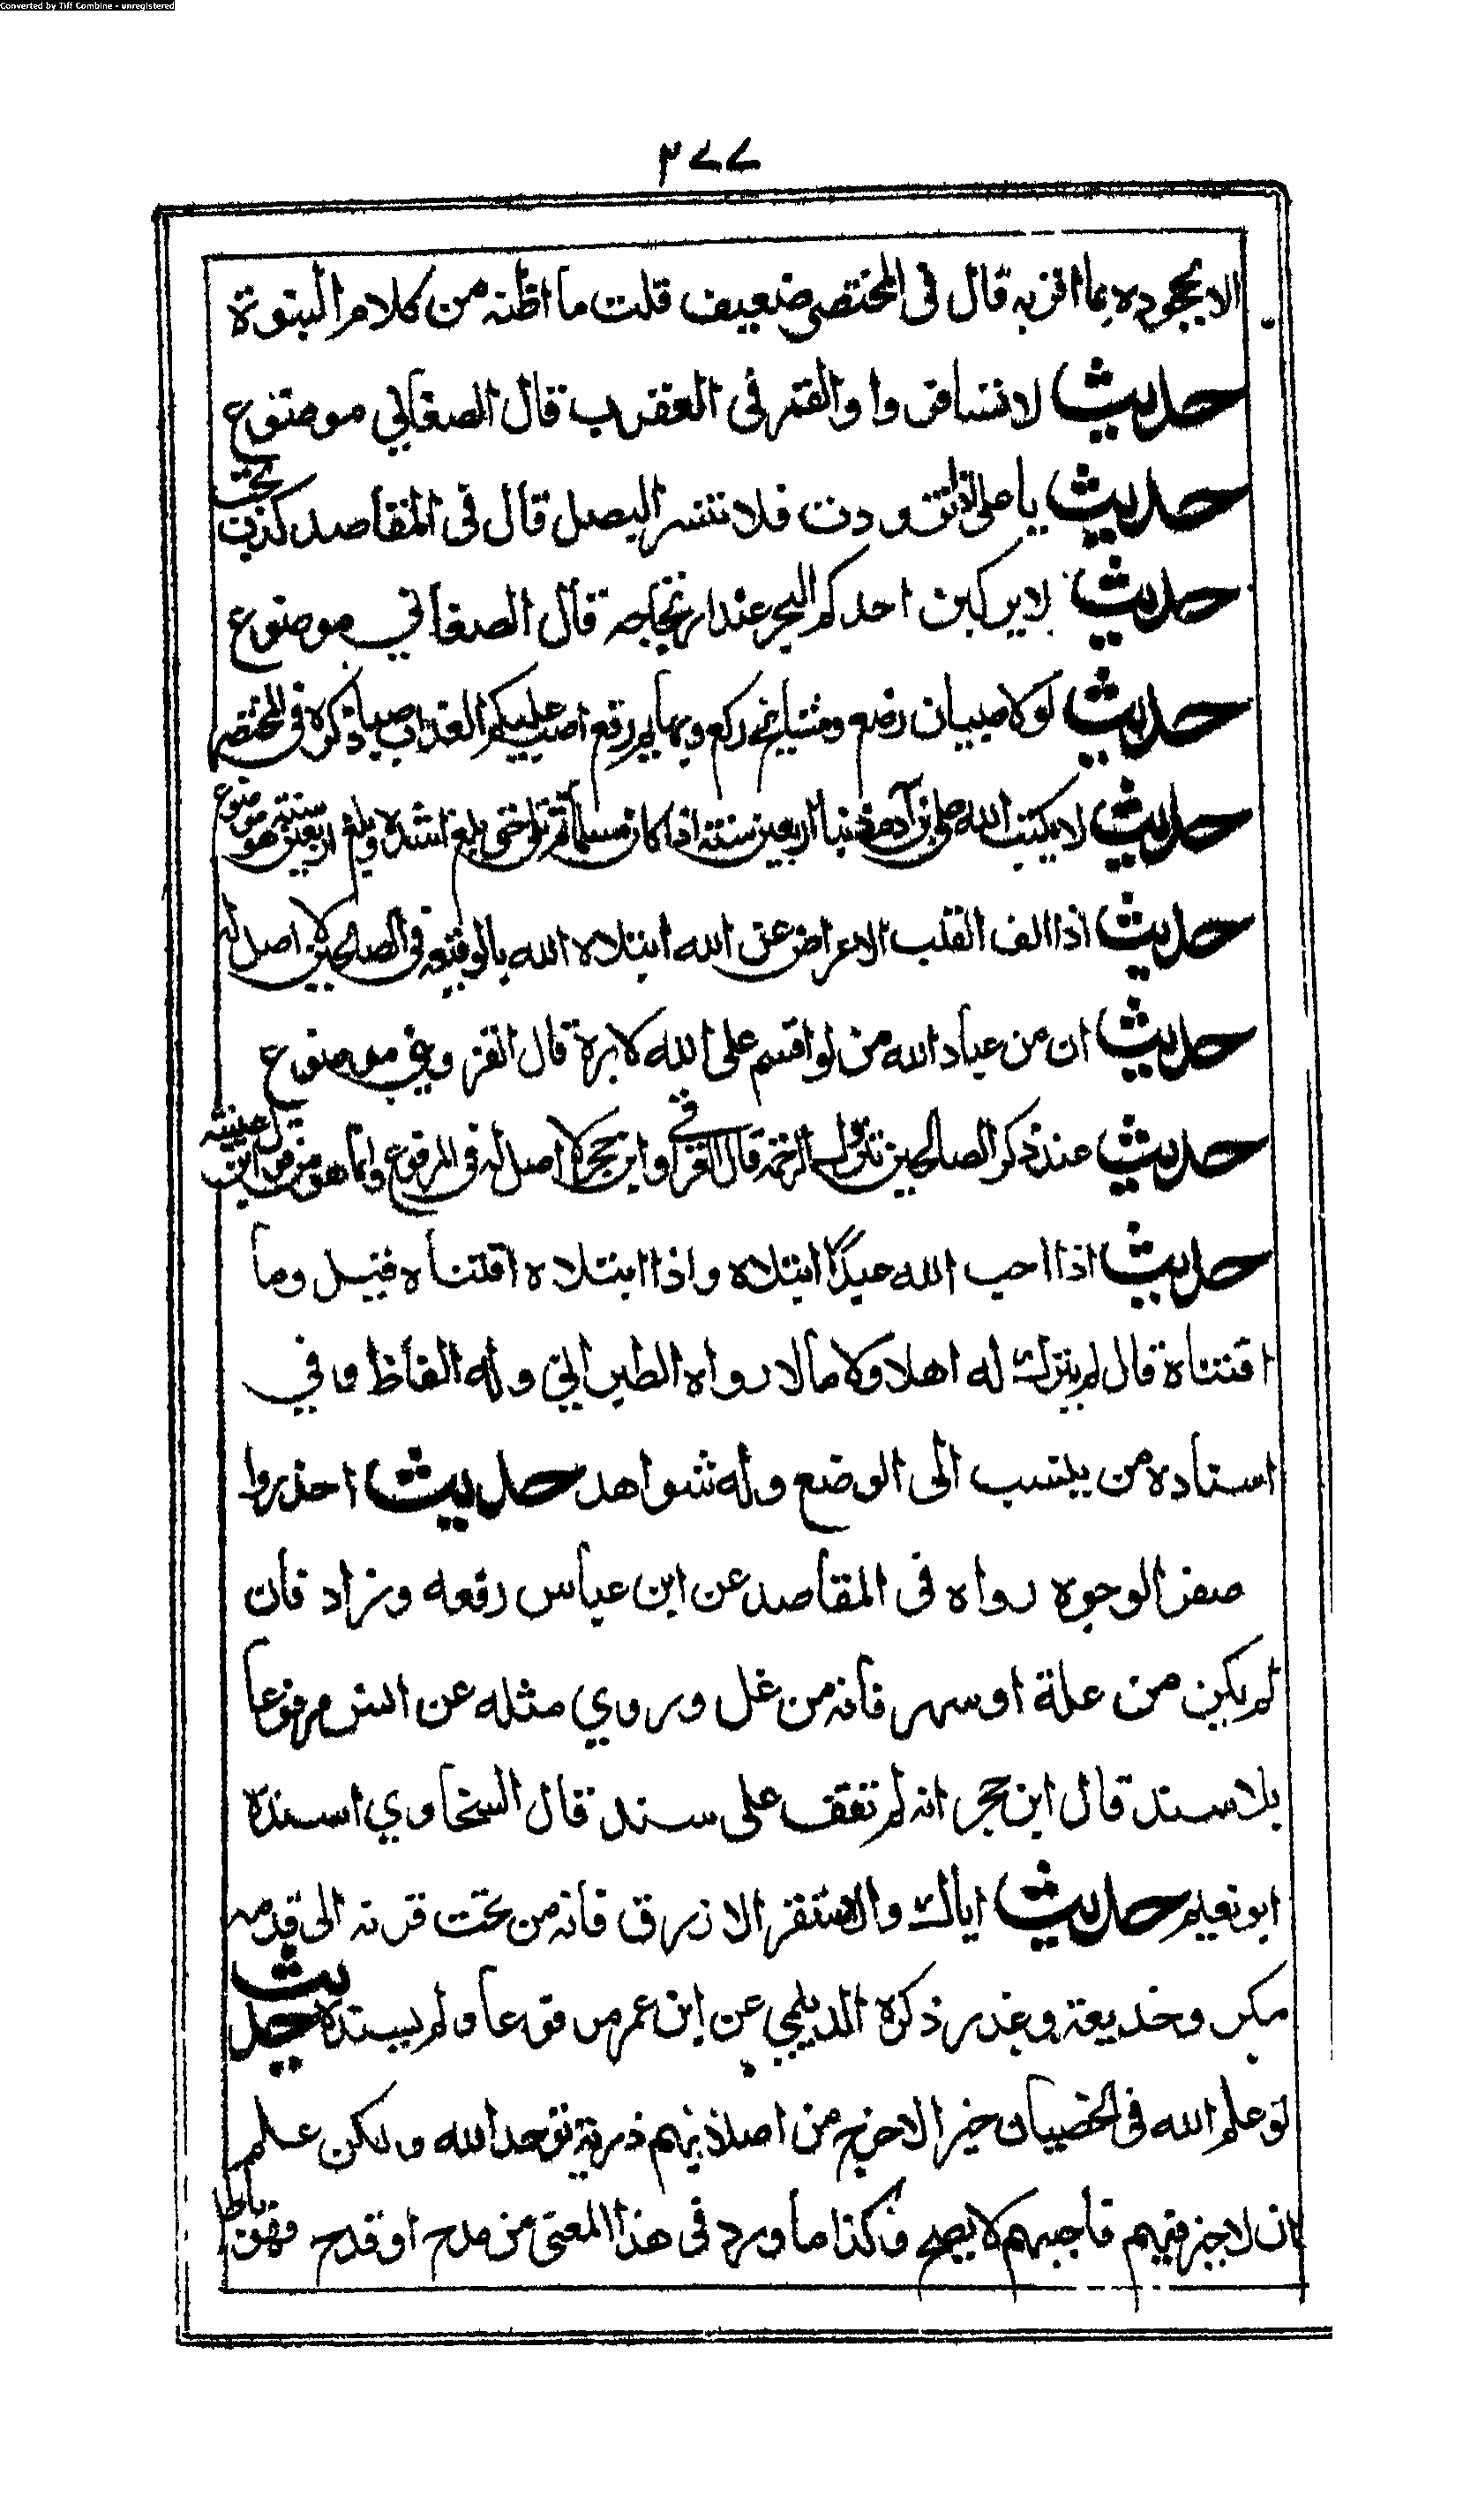 Converted by Tiff Combine - unregistered
٢٧٧
الا بجحوده بما اقر به قال في المختصر ضعيف قلت ما اظنه من كلام النبوة
حديث لا تسافروا والقمر في العقرب قال الصغاني موضوع
حديث يا علي اذا تزودت فلا تنس البصل قال في المقاصد كذب بحت
حديث لا يركبن احدكم البحر عند ارتجاجه قال الصغاني موضوع
حديث لولا صبيان رضع ومشايخ ركع وبهايم رتع لصب عليكم العذاب صبا ذكره في المختصر
حديث لا يكتب الله على ابن آدم ذنبا اربعين سنة اذا كان مسلما ثم تلا حتى اذا بلغ اشده وبلغ اربعين سنة هو موضوع
حديث اذا الف القلب الاعراض عن الله ابتلاه الله بالوقيعة في الصالحين لا اصل له
حديث ان من عباد الله من لو اقسم على الله لابره قال القزويني موضوع
حديث عند ذكر الصالحين تنزل الرحمة قال العراقي وابن حجر لا اصل له في المرفوع وانما هو من قول ابن عيينة
حديث اذا احب الله عبدا ابتلاه واذا ابتلاه اقتناه قيل وما
اقتناه قال لم يترك له اهلا ولا مالا رواه الطبراني وله الفاظ وفي
اسناده من ينسب الى الوضع وله شواهد حديث احذروا
صفر الوجوه رواه في المقاصد عن ابن عباس رفعه وزاد فان
لم يكن من علة او سهر فانه من غل وروي مثله عن انس مرفوعا
بلا سند قال ابن حجر انه لم تقف على سند قال السخاوي اسنده
ابو نعيم حديث اياك والاشقر الازرق فانه من تحت قرنه الى قدمه
مكر وخديعة وغدر ذكره الديلمي عن ابن عمر مرفوعا ولم يسنده حديث
لو علم الله في الخصيان خيرا لاخرج من اصلابهم ذرية توحد الله ولكن علم
ان لا خير فيهم فاجبهم لا يصح وكذا ما ورد في هذا المعنى من مدح او قدح فهو باطل